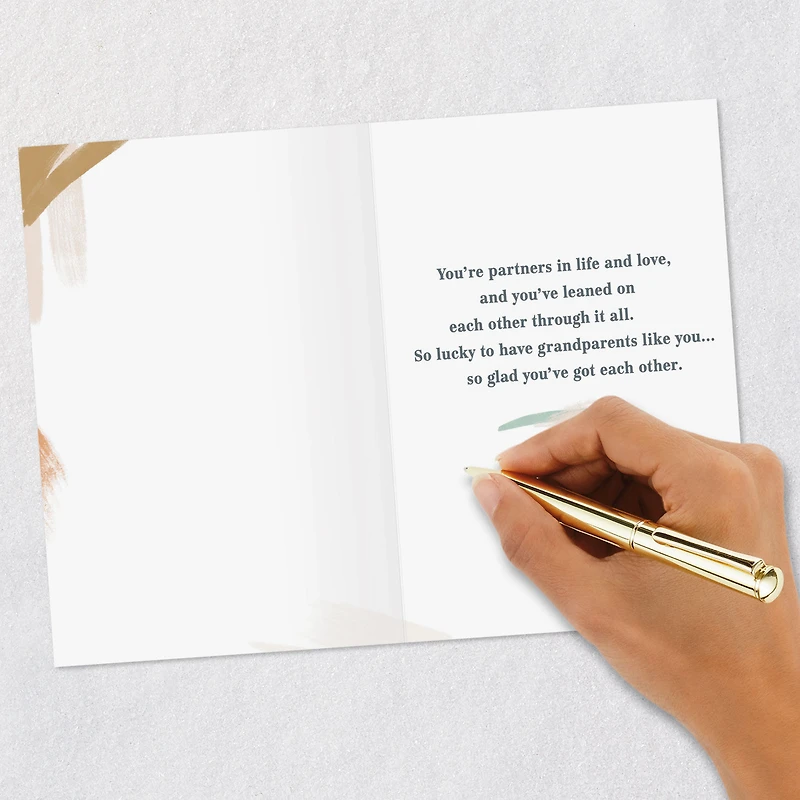 You're partners in life and love,
and you've leaned on
each other through it all.
So lucky to have grandparents like you...
so glad you've got each other.